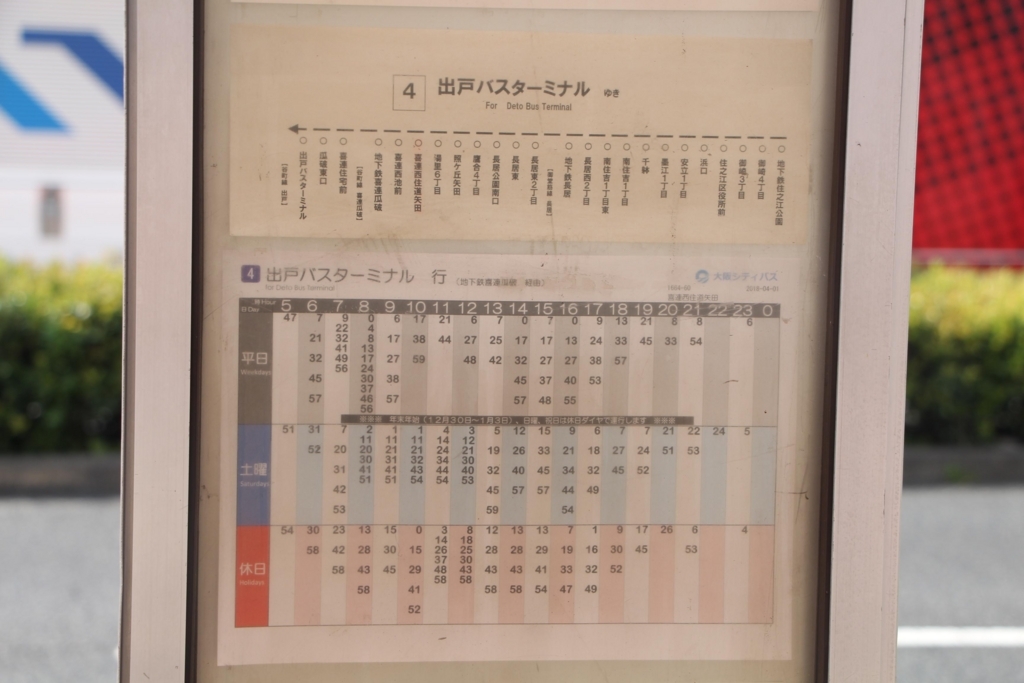 4 出戸バスターミナル ゆき
For Deto Bus Terminal
地下鉄住之江公園
御崎4丁目
御崎3丁目
住之江区役所前
浜口
安立1丁目
千躰
南住吉1丁目
南住吉1丁目東
長居西2丁目
地下鉄長居
長居東2丁目
長居東
長居公園南口
鷹合4丁目
照ケ丘矢田
湯里6丁目
喜連西住道矢田
喜連西池前
地下鉄喜連瓜破
喜連住宅前
瓜破東口
出戸バスターミナル
4 出戸バスターミナル 行 (地下鉄喜連瓜破 経由)
for Deto Bus Terminal
大阪シティバス
喜連西住道矢田
5 6 7 8 9 10 11 12 13 14 15 16 17 18 19 20 21 22 23 0
平日
Weekdays
47 7 9 0 6 17 21 6 7 0 7 0 9 13 21 8 8 6
22 4
21 32 8 17 38 44 27 25 17 17 13 24 33 45 33 54
41 13
32 49 17 27 59 48 42 32 27 27 38 57
56 24
45 30 38 45 37 40 53
37
57 46 57 57 48 55
56
年末年始(12月30日~1月3日)、日曜、祝日は休日ダイヤで運行します
土曜
Saturdays
51 31 7 2 1 1 4 3 5 12 15 9 6 7 7 21 22 24 5
11 11 11 14 12
52 20 20 21 21 24 21 19 26 33 21 18 27 24 51 53
30 31 32 34 30
31 41 41 43 44 40 32 40 45 34 32 45 52
51 51 54 54 53
42 45 57 57 44 49
53 59 54
休日
Holidays
54 30 23 13 15 0 3 8 12 13 13 7 1 9 17 26 6 4
14 18
58 42 28 30 15 26 25 28 28 29 19 16 30 45 53
37 30
58 43 45 29 48 43 43 43 41 33 32 52
58 58
58 41 58 58 54 47 49
52